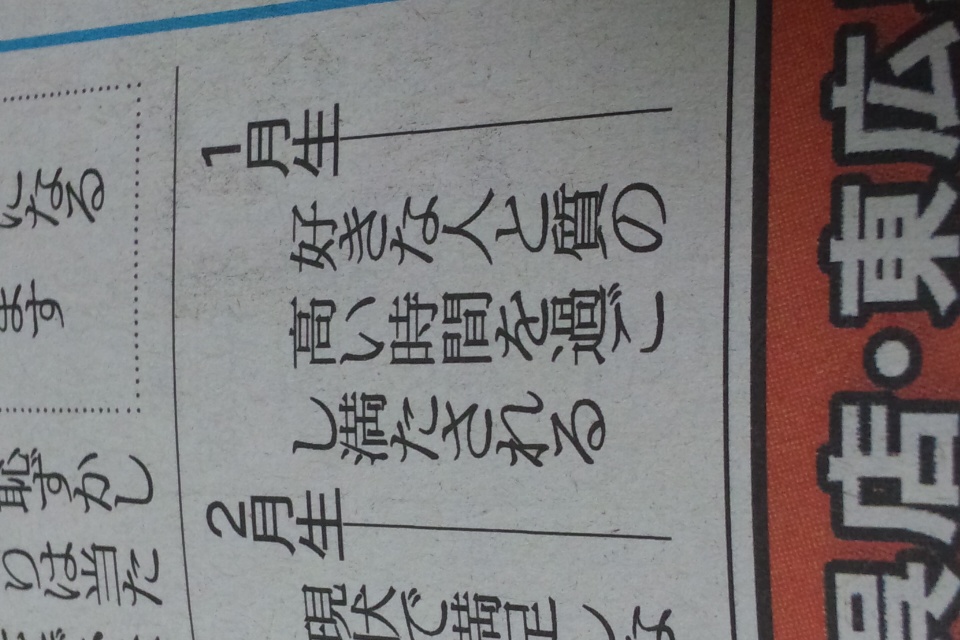 1月生
好きな人と質の
高い時間を過ご
し満たされる
2月生
現状で満足しな
なる
ます
恥ずかし
りは当た
呉店・東広